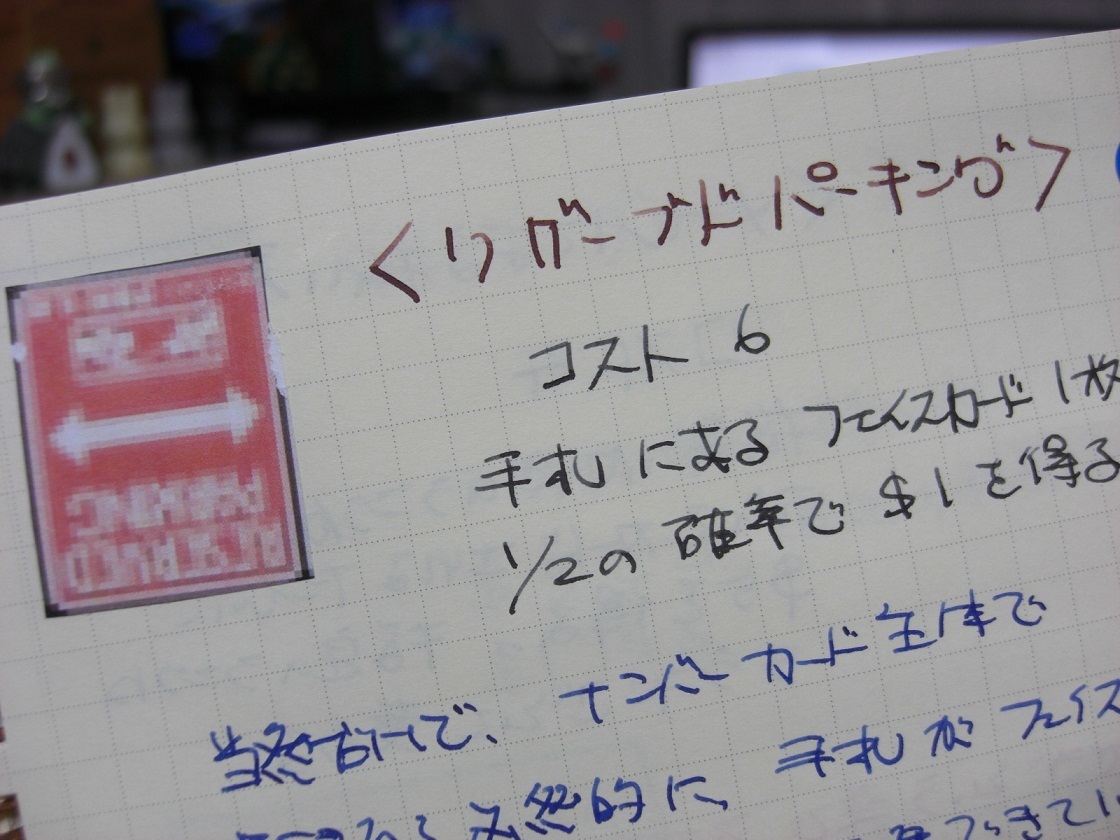 <リザーブドパーキング>
コスト 6
手札にある フェイスカード 1枚
1/2の 確率で $1を得る
ナンバーカード主体で
必然的に 手札が フェイス
RESERVED
PARKING